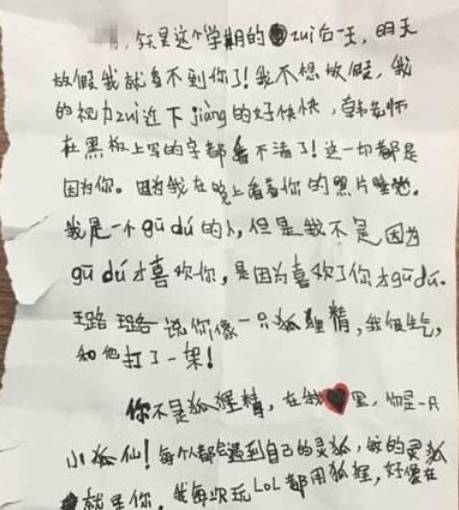 ，今天是这个学期的zui后一天，明天
放假我就看不到你了！我不想放假，我
的视力zui近下jiàng的好快快，韩老师
在黑板上写的字都看不清了！这一切都是
因为你。因为我在晚上看着你的照片睡觉。
我是一个gū dú的人，但是我不是因为
gū dú才喜欢你，是因为喜欢了你才gū dú.
璐璐说你像一只狐狸精，我很生气，
和他打了一架！
你不是狐狸精，在我里，你是一只
小狐仙！每个人都会遇到自己的灵狐，我的灵狐
就是你，我每次玩LOL都用狐狸，好像在